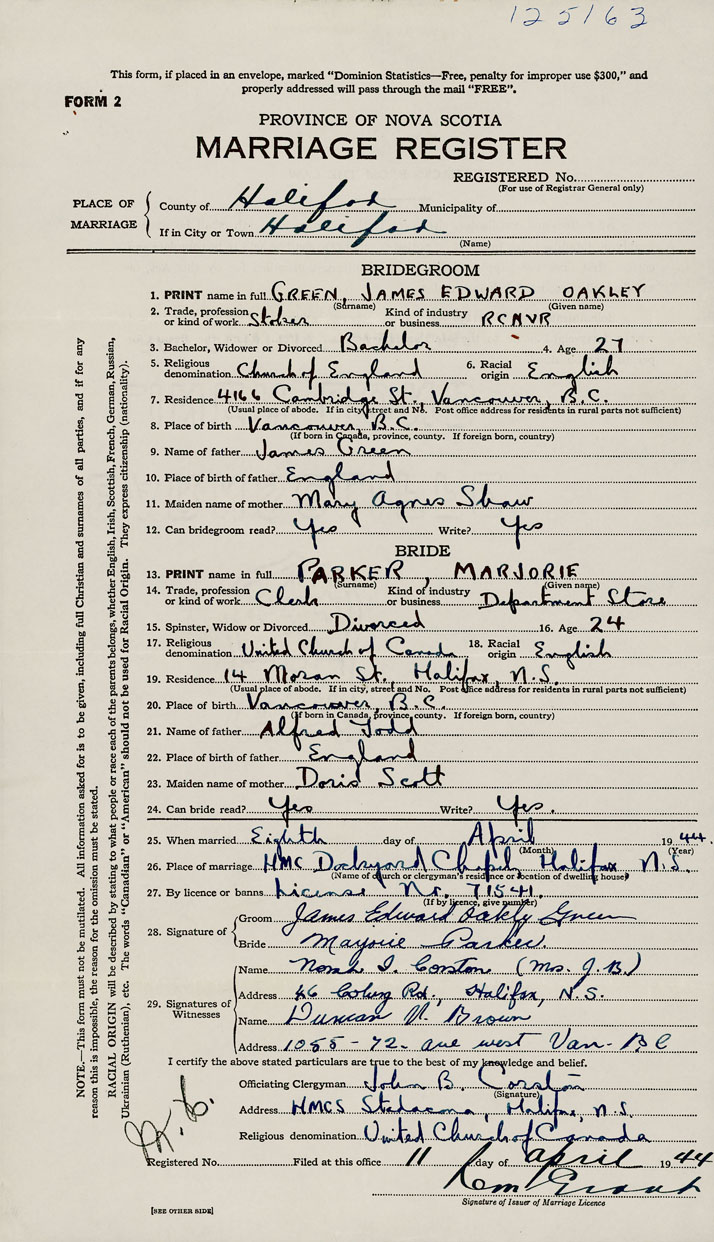 125163
This form, if placed in an envelope, marked "Dominion Statistics—Free, penalty for improper use $300," and
properly addressed will pass through the mail "FREE".
FORM 2
PROVINCE OF NOVA SCOTIA
MARRIAGE REGISTER
REGISTERED No.
(For use of Registrar General only)
PLACE OF MARRIAGE
County of Halifax Municipality of
If in City or Town Halifax
(Name)
BRIDEGROOM
1. PRINT name in full GREEN, JAMES EDWARD OAKLEY
(Surname) (Given name)
2. Trade, profession or kind of work Stoker Kind of industry or business RCNVR
3. Bachelor, Widower or Divorced Bachelor 4. Age 27
5. Religious denomination Church of England 6. Racial origin English
7. Residence 4166 Cambridge St., Vancouver, B.C.
(Usual place of abode. If in city, street and No. Post office address for residents in rural parts not sufficient)
8. Place of birth Vancouver, B.C.
(If born in Canada, province, county. If foreign born, country)
9. Name of father James Green
10. Place of birth of father England
11. Maiden name of mother Mary Agnes Shaw
12. Can bridegroom read? Yes Write? Yes
BRIDE
13. PRINT name in full PARKER, MARJORIE
(Surname) (Given name)
14. Trade, profession or kind of work Clerk Kind of industry or business Department Store
15. Spinster, Widow or Divorced Divorced 16. Age 24
17. Religious denomination United Church of Canada 18. Racial origin English
19. Residence 14 Moran St., Halifax, N.S.
(Usual place of abode. If in city, street and No. Post office address for residents in rural parts not sufficient)
20. Place of birth Vancouver, B.C.
(If born in Canada, province, county. If foreign born, country)
21. Name of father Alfred Todd
22. Place of birth of father England
23. Maiden name of mother Doris Scott
24. Can bride read? Yes Write? Yes.
25. When married Eighth day of April 1944.
(Month) (Year)
26. Place of marriage HMC Dockyard Chapel Halifax N.S.
(Name of church or clergyman's residence or location of dwelling house)
27. By licence or banns License Nr. 71541.
(If by licence, give number)
28. Signature of
Groom James Edward Oakly Green
Bride Marjorie Parker.
29. Signatures of Witnesses
Name Norah I. Corston (Mrs. J.B.)
Address 46 Coburg Rd., Halifax, N.S.
Name Duncan N. Brown
Address 1055-72 ave west Van- BC
I certify the above stated particulars are true to the best of my knowledge and belief.
Officiating Clergyman John B. Corston
(Signature)
Address HMCS Stadacona, Halifax, N.S.
Religious denomination United Church of Canada
Registered No. Filed at this office 11 day of april 1944
Signature of Issuer of Marriage Licence
[SEE OTHER SIDE]
NOTE.—This form must not be mutilated. All information asked for is to be given, including full Christian and surnames of all parties, and if for any
reason this is impossible, the reason for the omission must be stated.
RACIAL ORIGIN will be described by stating to what people or race each of the parents belongs, whether English, Irish, Scottish, French, German, Russian,
Ukrainian (Ruthenian), etc. The words "Canadian" or "American" should not be used for Racial Origin. They express citizenship (nationality).